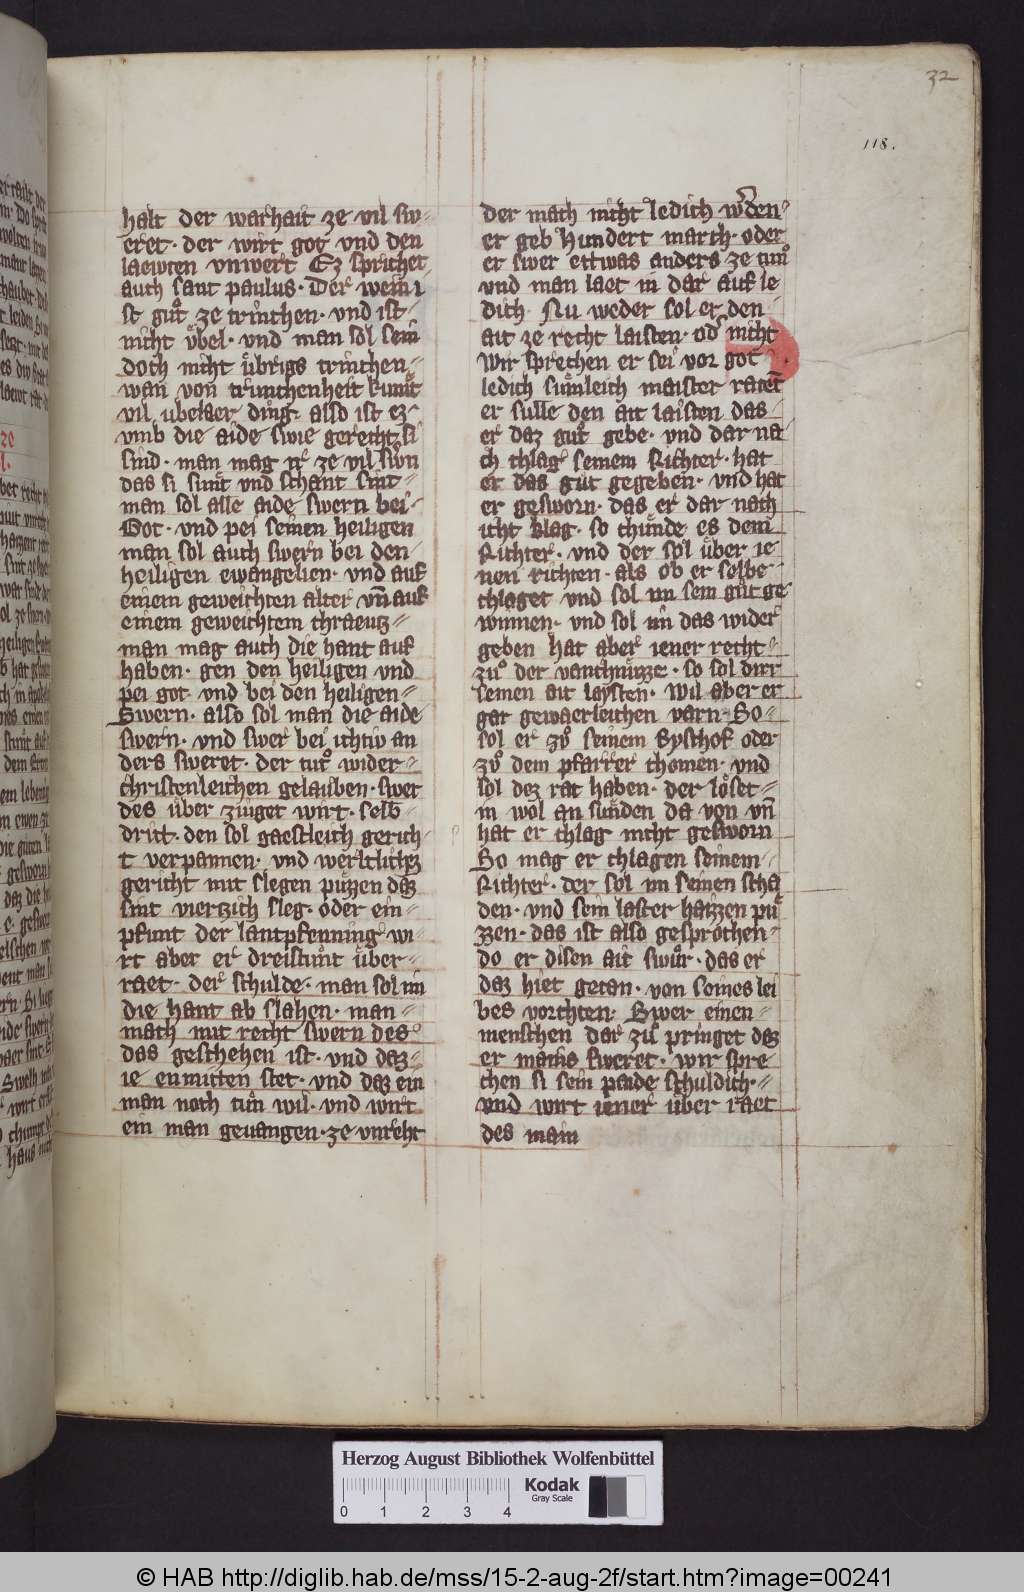 32
118.
halt der warhait ze vil sw=
eret · der wirt got vnd den
laewten vnwert Ez sprichet
auch sant paulus · Der wein i
st gůt ze trinchen · vnd ist
nicht v̈bel · vnd man sol sein
doch nicht v̈brigs trinchen=
wan von trunchenheit kumt
vil vbelaer ding · also ist ez
vmb die aide swie gerecht si
sind · man mag ir ze vil swn
das si sint vnd schant sint=
man sol alle aide swern bei·
Got · vnd pei seinen heiligen
man sol auch swern bei den=
heiligen ewangelien · vnd auf
einem geweichten alter vn̄ auf
einem geweichtem chraeutz=
man mag auch die hant auf
haben · gen den heiligen vnd
pei got · vnd bei den heiligen=
Swern · also sol man die aide
swern · vnd swer bei ichtiv an
ders sweret · der tut wider=
christenleichen gelauben · swer
des v̈ber zivget wirt · selb=
dritt · den sol gaestleich gerich
t verpannen · vnd werltlichz
gericht mit slegen püzzen daz
sint viertzich sleg · oder ein=
pfunt der lantpfenning wi=
rt aber er dreistunt v̈ber=
raet · der schulde · man sol im
die hant ab slahen · man=
mach mit recht swern des
das geschehen ist · vnd daz=
ie enmitten stet · vnd daz ein
man noch tun wil · vnd wirt
ein man geuangen · ze vnreht
der mach nicht ledich w̄den=
er geb Hundert march · oder
er swer ettwas anders ze tun
vnd man laet in dar auf le
dich · Nu weder sol er den
ait ze recht laisten · od̄ nicht
wir sprechen er sei vor got
ledich sumleich maister raten̄
er sulle den ait laisten das=
er daz gůt gebe · vnd dar na
ch chlag seinem Richter · hat
er das gůt gegeben · vnd hat
er gesworn · das er dar nach
icht klag · so chünde es dem
Richter · vnd der sol v̈ber ie
nen richten · als ob er selbe
chlaget vnd sol im sein gůt ge
winnen · vnd sol im das wider
geben hat aber iener recht=
zů der vanchnüzze · so sol dirr
seinen ait laysten · wil aber er
gar gewaerleichen varn · So=
sol er zů seinem Byschof oder
zů dem pfarrer chomen · vnd
sol dez rat haben · der löset=
in wol an sünden da von vn̄
hat er chlag nicht gesworn
So mag er chlagen seinem=
Richter · der sol im seinen scha
den · vnd sein laster haizzen pü
zzen · das ist also gesprochen=
do er disen ait swůr · das er
daz hiet getan · von seines lei
bes vorchten · Swer einen=
menschen dar zů pringet daz
er mains sweret · wir spre
chen si sein paide schuldich · =
vnd wirt iener v̈ber raet
des main
Herzog August Bibliothek Wolfenbüttel
0 1 2 3 4
Kodak
Gray Scale
© HAB http://diglib.hab.de/mss/15-2-aug-2f/start.htm?image=00241